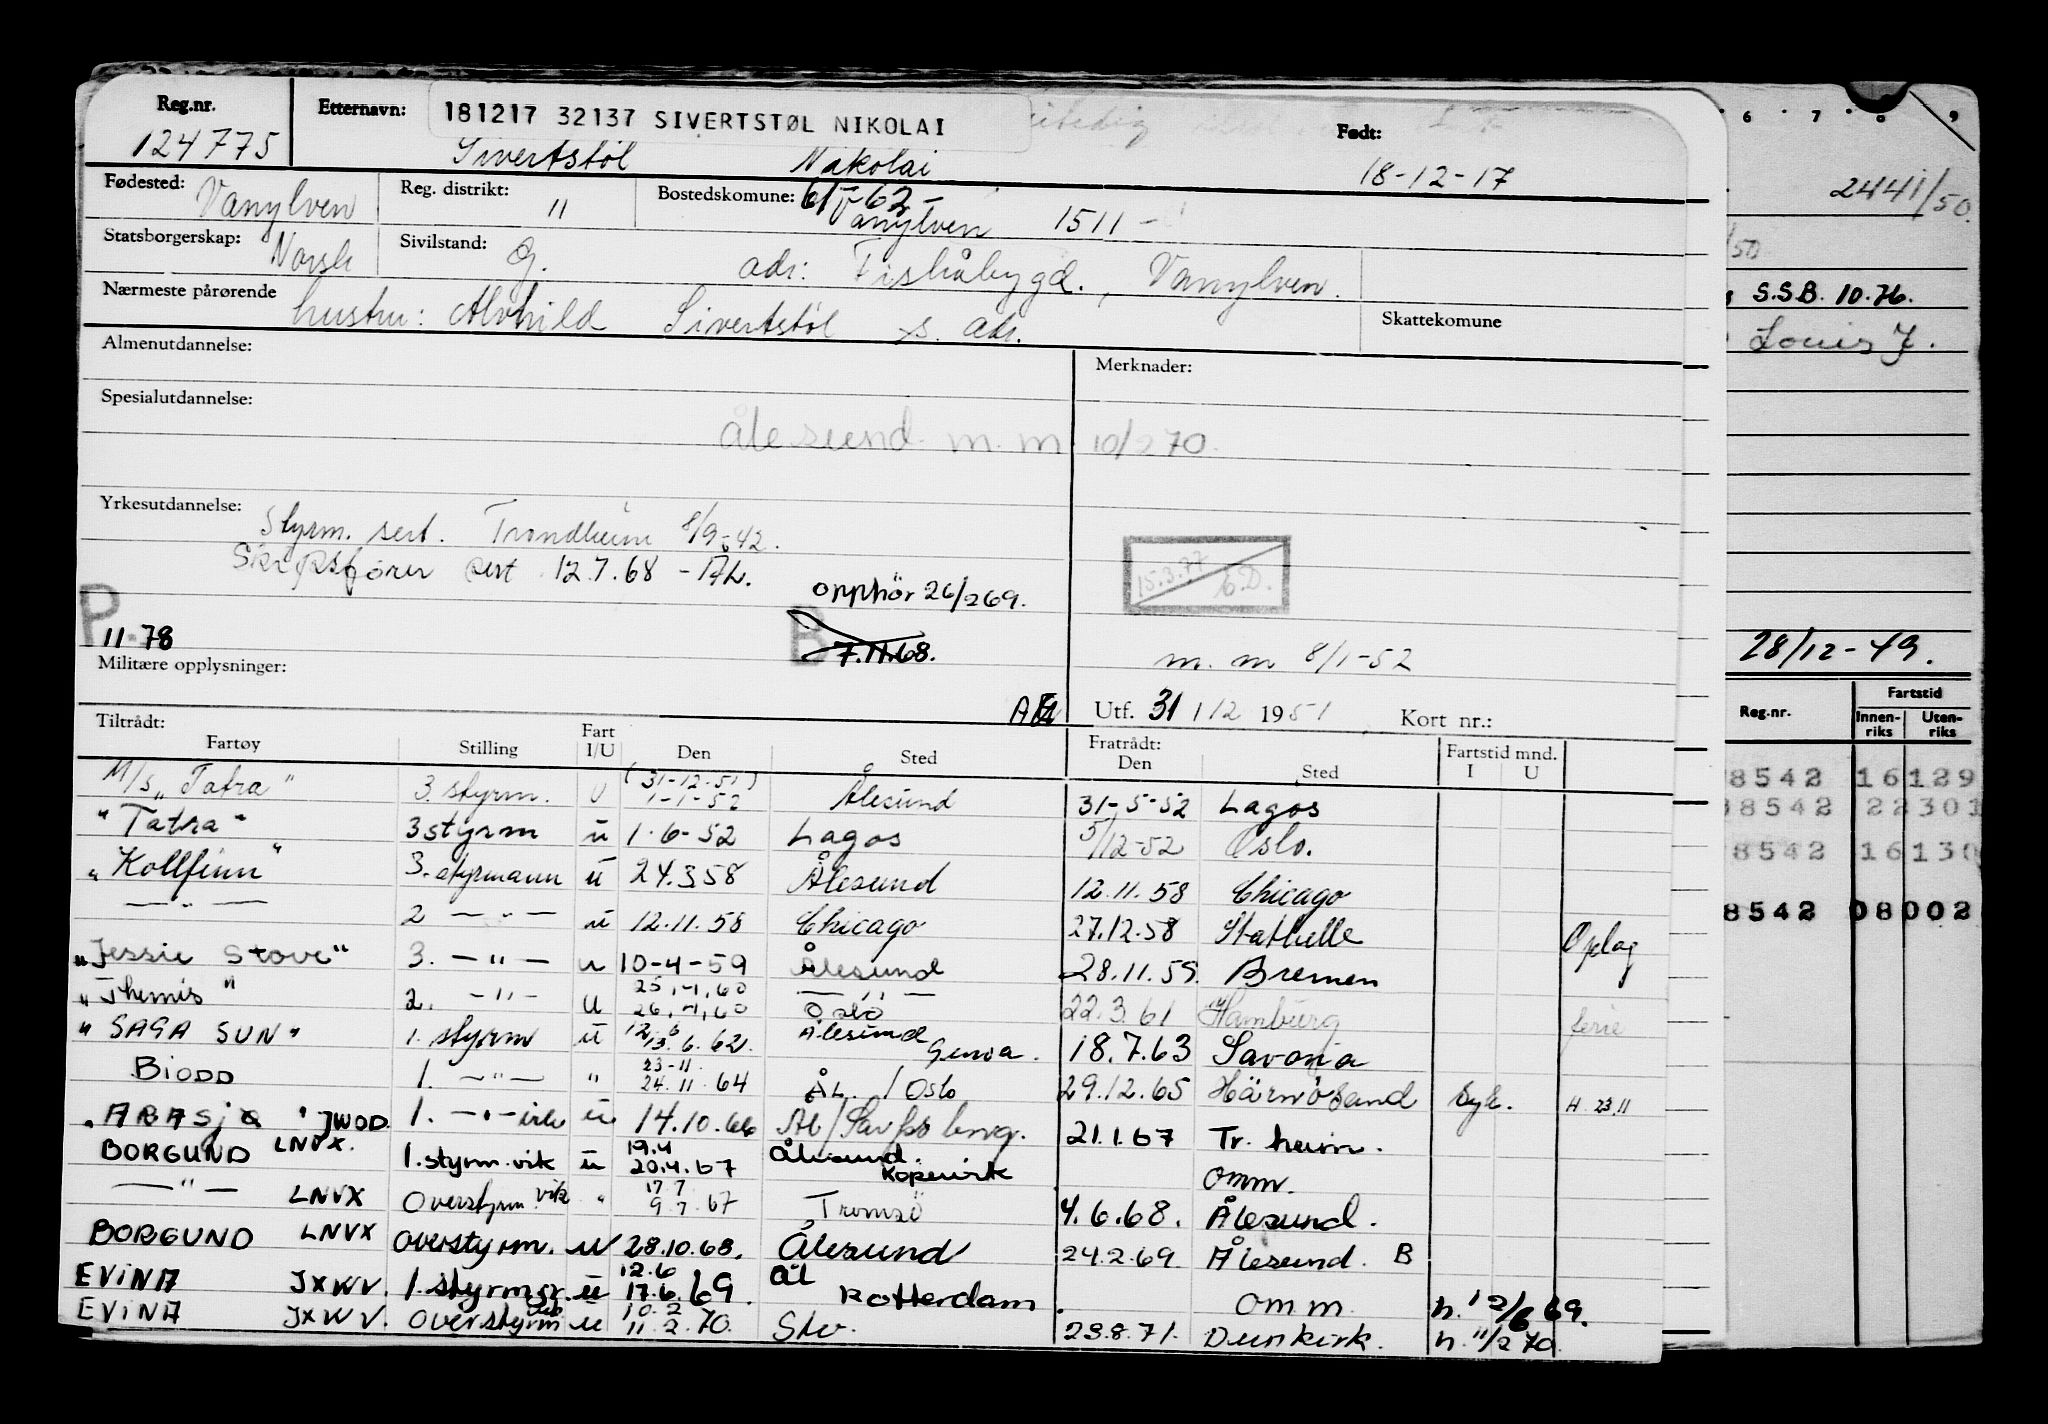 Reg.nr. Etternavn: 181217 32137 SIVERTSTØL NIKOLAI Født:
124775 Sivertstøl Nikolai 18-12-17
Fødested: Vanylven Reg. distrikt: " Bostedskomune: 61-62- Vanylven 1511-
Statsborgerskap: Norsk Sivilstand: g. adr: Fiskåbygd., Vanylven.
Nærmeste pårørende hustru: Alvhild Sivertstøl s. adr. Skattekomune
Almenutdannelse: Merknader:
Spesialutdannelse:
Ålesund m.m 10/2 70.
Yrkesutdannelse: Styrm. sert. Trondheim 8/9-42.
Skipsfører sert 12.7.68 - ÅL.
opphör 26/2 69.
15.3.77
P 11-78 B 7.11.68. m.m 8/1-52
Militære opplysninger:
Utf. 31/12 1951 Kort nr.:
Tiltrådt: Fratrådt:
Fartøy Stilling Fart I/U Den Sted Den Sted Fartstid mnd. I U
M/s "Tatra" 3. styrm. U (31-12-51) 1-1-52 Ålesund 31-5-52 Lagos
"Tatra" 3 styrm u 1-6-52 Lagos 5/12-52 Oslo.
"Kollfinn" 3. styrmann u 24.3.58 Ålesund 12.11.58 Chicago
— " — 2 — " — u 12.11.58 Chicago 27.12.58 Stathelle Oplag
"Jessie Stove" 3. — " — u 10-4-59 Ålesund 28.11.59. Bremen
"Themis" 2. — " — U 25.4.60 26.4.60 — " — Oslo 22.3.61 Hamburg ferie
"SAGA SUN" 1. styrm u 12.6 13.6.62. Ålesund Genova. 18.7.63 Savona
BIODD 1. — " — " 23-11 24.11.64 ÅL. / Oslo 29.12.65 Härnösand Syk. H. 23.11
"ABASJA" JWOD 1. — " — vik u 14.10.66 Ål/Sarpsborg. 21.1.67 Tr.heim.
BORGUND LNVX. 1. styrm. vik u 19.4 20.4.67 Ålesund. Kopervik omm.
— " — LNVX Overstyrm. vik " 17.7 9.7.67 Tromsö 4.6.68. Ålesund.
BORGUND LNVX overstyrm. u 28.10.68. Ålesund 24.2.69 Ålesund. B
EVINA JXWV. 1. styrm gr. u 12.6 17.6.69. Ål Rotterdam omm h. 12/6 69.
EVINA JXWV. overstyrm u 10.2 11.2.70. Stv. 23.8.71. Dunkirk. h. 11/2 70.
6 7 8 9
2441/50.
/50
S.S.B. 10.76.
Louis J.
28/12-49.
Reg.nr. Fartstid
Innen-riks Uten-riks
8542 16129
8542 22301
8542 16130
8542 08002